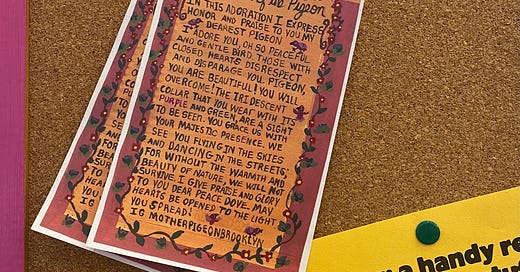 of the Pigeon
IN THIS ADORATION I EXPRESS
HONOR AND PRAISE TO YOU MY
DEAREST PIGEON
I ADORE YOU, OH SO PEACEFUL
AND GENTLE BIRD. THOSE WITH
CLOSED HEARTS DISRESPECT
AND DISPARAGE YOU. PIGEON,
YOU ARE BEAUTIFUL! YOU WILL
OVERCOME! THE IRIDESCENT
COLLAR THAT YOU WEAR WITH ITS
PURPLE AND GREEN, ARE A SIGHT
TO BE SEEN. YOU GRACE US WITH
YOUR MAJESTIC PRESENCE. WE
SEE YOU FLYING IN THE SKIES
AND DANCING IN THE STREETS,
FOR WITHOUT THE WARMTH AND
BEAUTY OF NATURE, WE WILL NOT
SURVIVE. I GIVE PRAISE AND GLORY
TO YOU DEAR PEACE DOVE. MAY
HEARTS BE OPENED TO THE LIGHT
YOU SPREAD!
IG MOTHERPIGEONBROOKLYN
a handy re